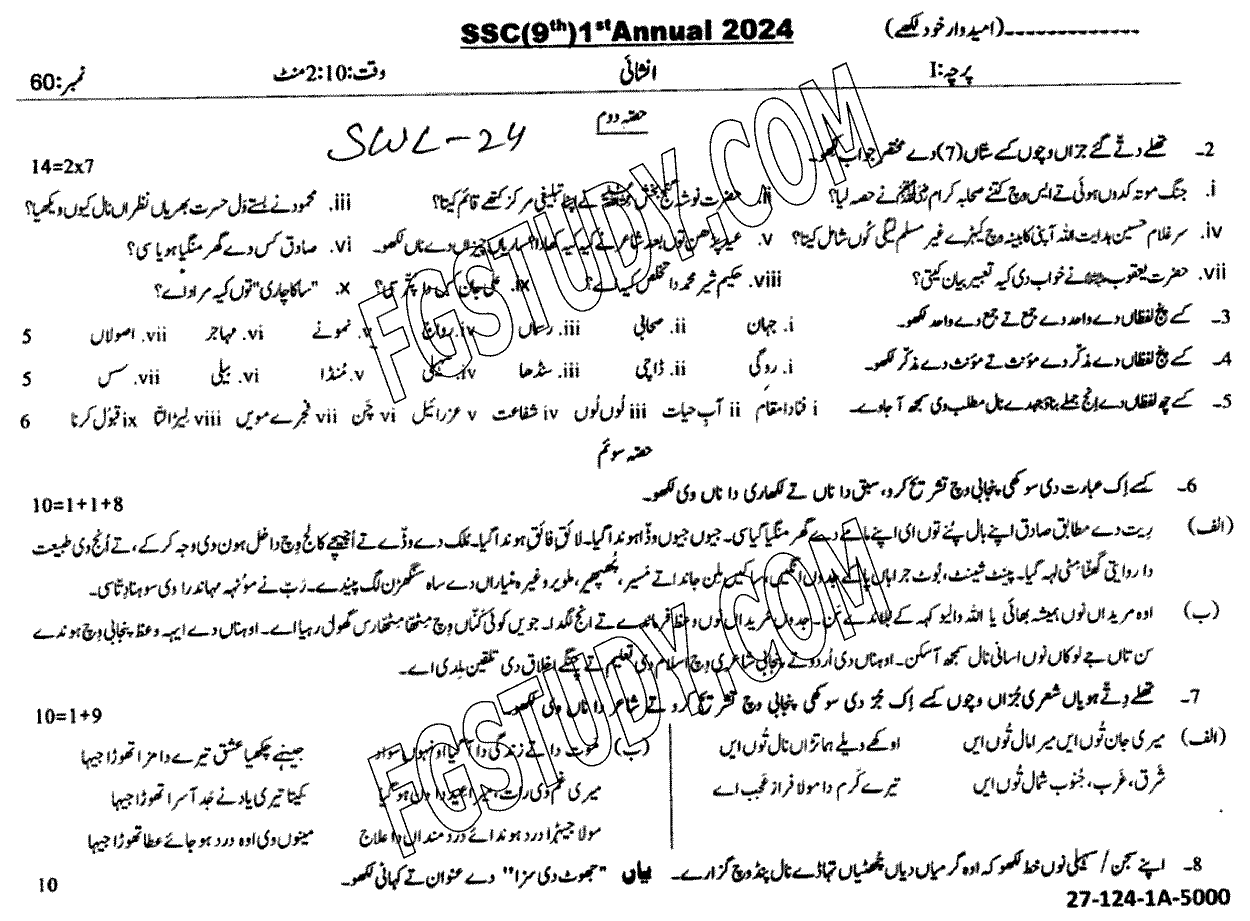 SSC(9th)1st Annual 2024 (امیدوار خود لکھے)-------------
پرچہ:I انشائی وقت:2:10منٹ نمبر:60
حصّہ دوم
SWL-24
2۔ تھلے دتے گئے جزاں وچوں کسے ستاں (7) دے مختصر جواب لکھو۔ 14=2x7
i. جنگ موتہ کدوں ہوئی تے ایس وچ کتنے صحابہ کرامؓ نے حصہ لیا؟ ii. حضرت نوشہ گنج بخشؒ نے اپنے تبلیغی مرکز کتھے قائم کیتا؟ iii. محمود نے بستے وَل حسرت بھریاں نظراں نال کیوں ویکھیا؟
iv. سر غلام حسین ہدایت اللہ اپنی کابینہ وچ کیہڑے غیر مسلم لیگی نوں شامل کیتا؟ v. عید پڑھن توں بعد شاعر نے کیہ کیہ کھادا؟ ساریاں چیزاں دے ناں لکھو۔ vi. صادق کس دے گھر منگیا ہویا سی؟
vii. حضرت یعقوبؑ نے خواب دی کیہ تعبیر بیان کیتی؟ viii. حکیم شیر محمد دا تخلص کیہ اے؟ ix. علی جان کس دا پتر سی؟ x. "ساکا چاری" توں کیہ مراد اے؟
3۔ کسے پنج لفظاں دے واحد دے جمع تے جمع دے واحد لکھو۔ i. جہان ii. صحابی iii. رسماں iv. رواج v. نمونے vi. مہاجر vii. اصولاں 5
4۔ کسے پنج لفظاں دے مذکّر دے مؤنث تے مؤنث دے مذکّر لکھو۔ i. روگی ii. ڈاچی iii. سنڈھا iv. v. مُنڈا vi. بیلی vii. سس 5
5۔ کسے چھ لفظاں دے اِنج جملے بناؤ جہدے نال مطلب دی سمجھ آ جاوے۔ i فنا دا مقام ii آبِ حیات iii لُوں لُوں iv شفاعت v عزرائیل vi چَن vii فجرے سویں viii لیڑا لتّا ix قبول کرنا 6
حصّہ سوئم
6۔ کسے اِک عبارت دی سوکھی پنجابی وچ تشریح کرو، سبق دا ناں تے لکھاری دا ناں وی لکھو۔ 10=1+1+8
(الف) رِیت دے مطابق صادق اپنے بال پنے توں ای اپنے مامے دے گھر منگیا گیا سی۔ جیوں جیوں وڈا ہوندا گیا۔ لائق فائق ہوندا گیا۔ مُلک دے وڈے تے اُچیچے کالج وِچ داخل ہون دی وجہ کر کے، تے اُنج وی طبیعت
دا روایتی گھٹا مٹی لہہ گیا۔ پینٹ شینٹ، بُوٹ جراباں پا کے جدوں انگلیں، ساکیں ملن جاندا تے مَسیر، پُھپھیر، ملویر وغیرہ مٹیاراں دے ساہ سنگھڑن لگ پیندے۔ رَبّ نے مُونہہ مہاندرا وی سوہنا دِتّا سی۔
(ب) اوہ مریداں نوں ہمیشہ بھائی یا اللہ والیو کہہ کے بلاندے سَن۔ جدوں مُریداں نوں وعظ فرماندے تے اِنج لگدا۔ جویں کوئی کَنّاں وِچ مِٹھا مِٹھا رَس گھول رہیا اے۔ اوہناں دے ایہہ وعظ پنجابی وِچ ہوندے
سن تاں جے لوکاں نوں اسانی نال سمجھ آ سکن۔ اوہناں دی اُردو تے پنجابی شاعری وِچ اسلام دی تعلیم تے چنگے اخلاق دی تلقین مِلدی اے۔
7۔ تھلے دِتّے ہویاں شعری جُزاں وچوں کسے اِک جُز دی سوکھی پنجابی وچ تشریح کرو تے شاعر دا ناں وی لکھو۔ 10=1+9
(الف) میری جان تُوں ایں میرا مال تُوں ایں اوکھے ویلے ہمانڑاں نال تُوں ایں
شَرق، غَرب، جُنوب شمال تُوں ایں تیرے کَرم دا مولا فراز عَجب اے
(ب) موت دا تے زندگی دا آ گیا اونہوں سواد جیہنے چکھیا عشق تیرے دا مزا تھوڑا جیہا
میری غم دی رات، میرا عید دا دن ہو گیا کیتا تیری یاد نے جَد آسرا تھوڑا جیہا
مولا جیہڑا درد ہوندا اے درد منداں دا علاج مینوں وی اوہ درد ہو جائے عطا تھوڑا جیہا
8۔ اپنے سجن / سہیلی نوں خط لکھو کہ اوہ گرمیاں دیاں چُھٹیاں تہاڈے نال پنڈ وچ گزارے۔ یاں "جھوٹ دی سزا" دے عنوان تے کہانی لکھو۔ 10
27-124-1A-5000
FGSTUDY.COM
FGSTUDY.COM